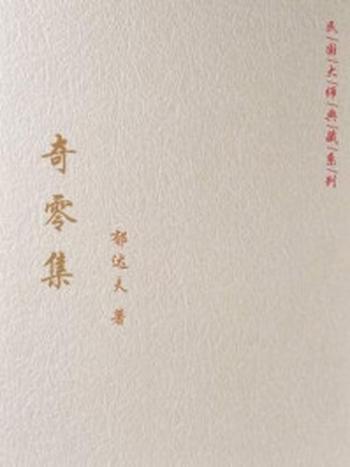 民国大师典藏系列
奇零集
郁达夫 著